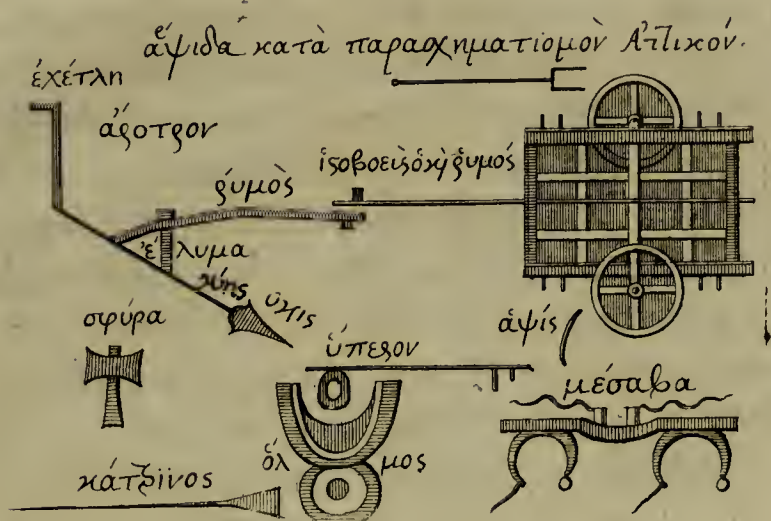 ἁψίδα κατὰ παρασχηματισμὸν Ἀττικόν.
ἐχέτλη
ἄροτρον
ῥυμὸς
ἱστοβοεὺς ὁ καὶ ῥυμός
ἔλυμα
γύης
ὕνις
σφύρα
ὕπερον
ἁψίς
μέσαβα
ὅλμος